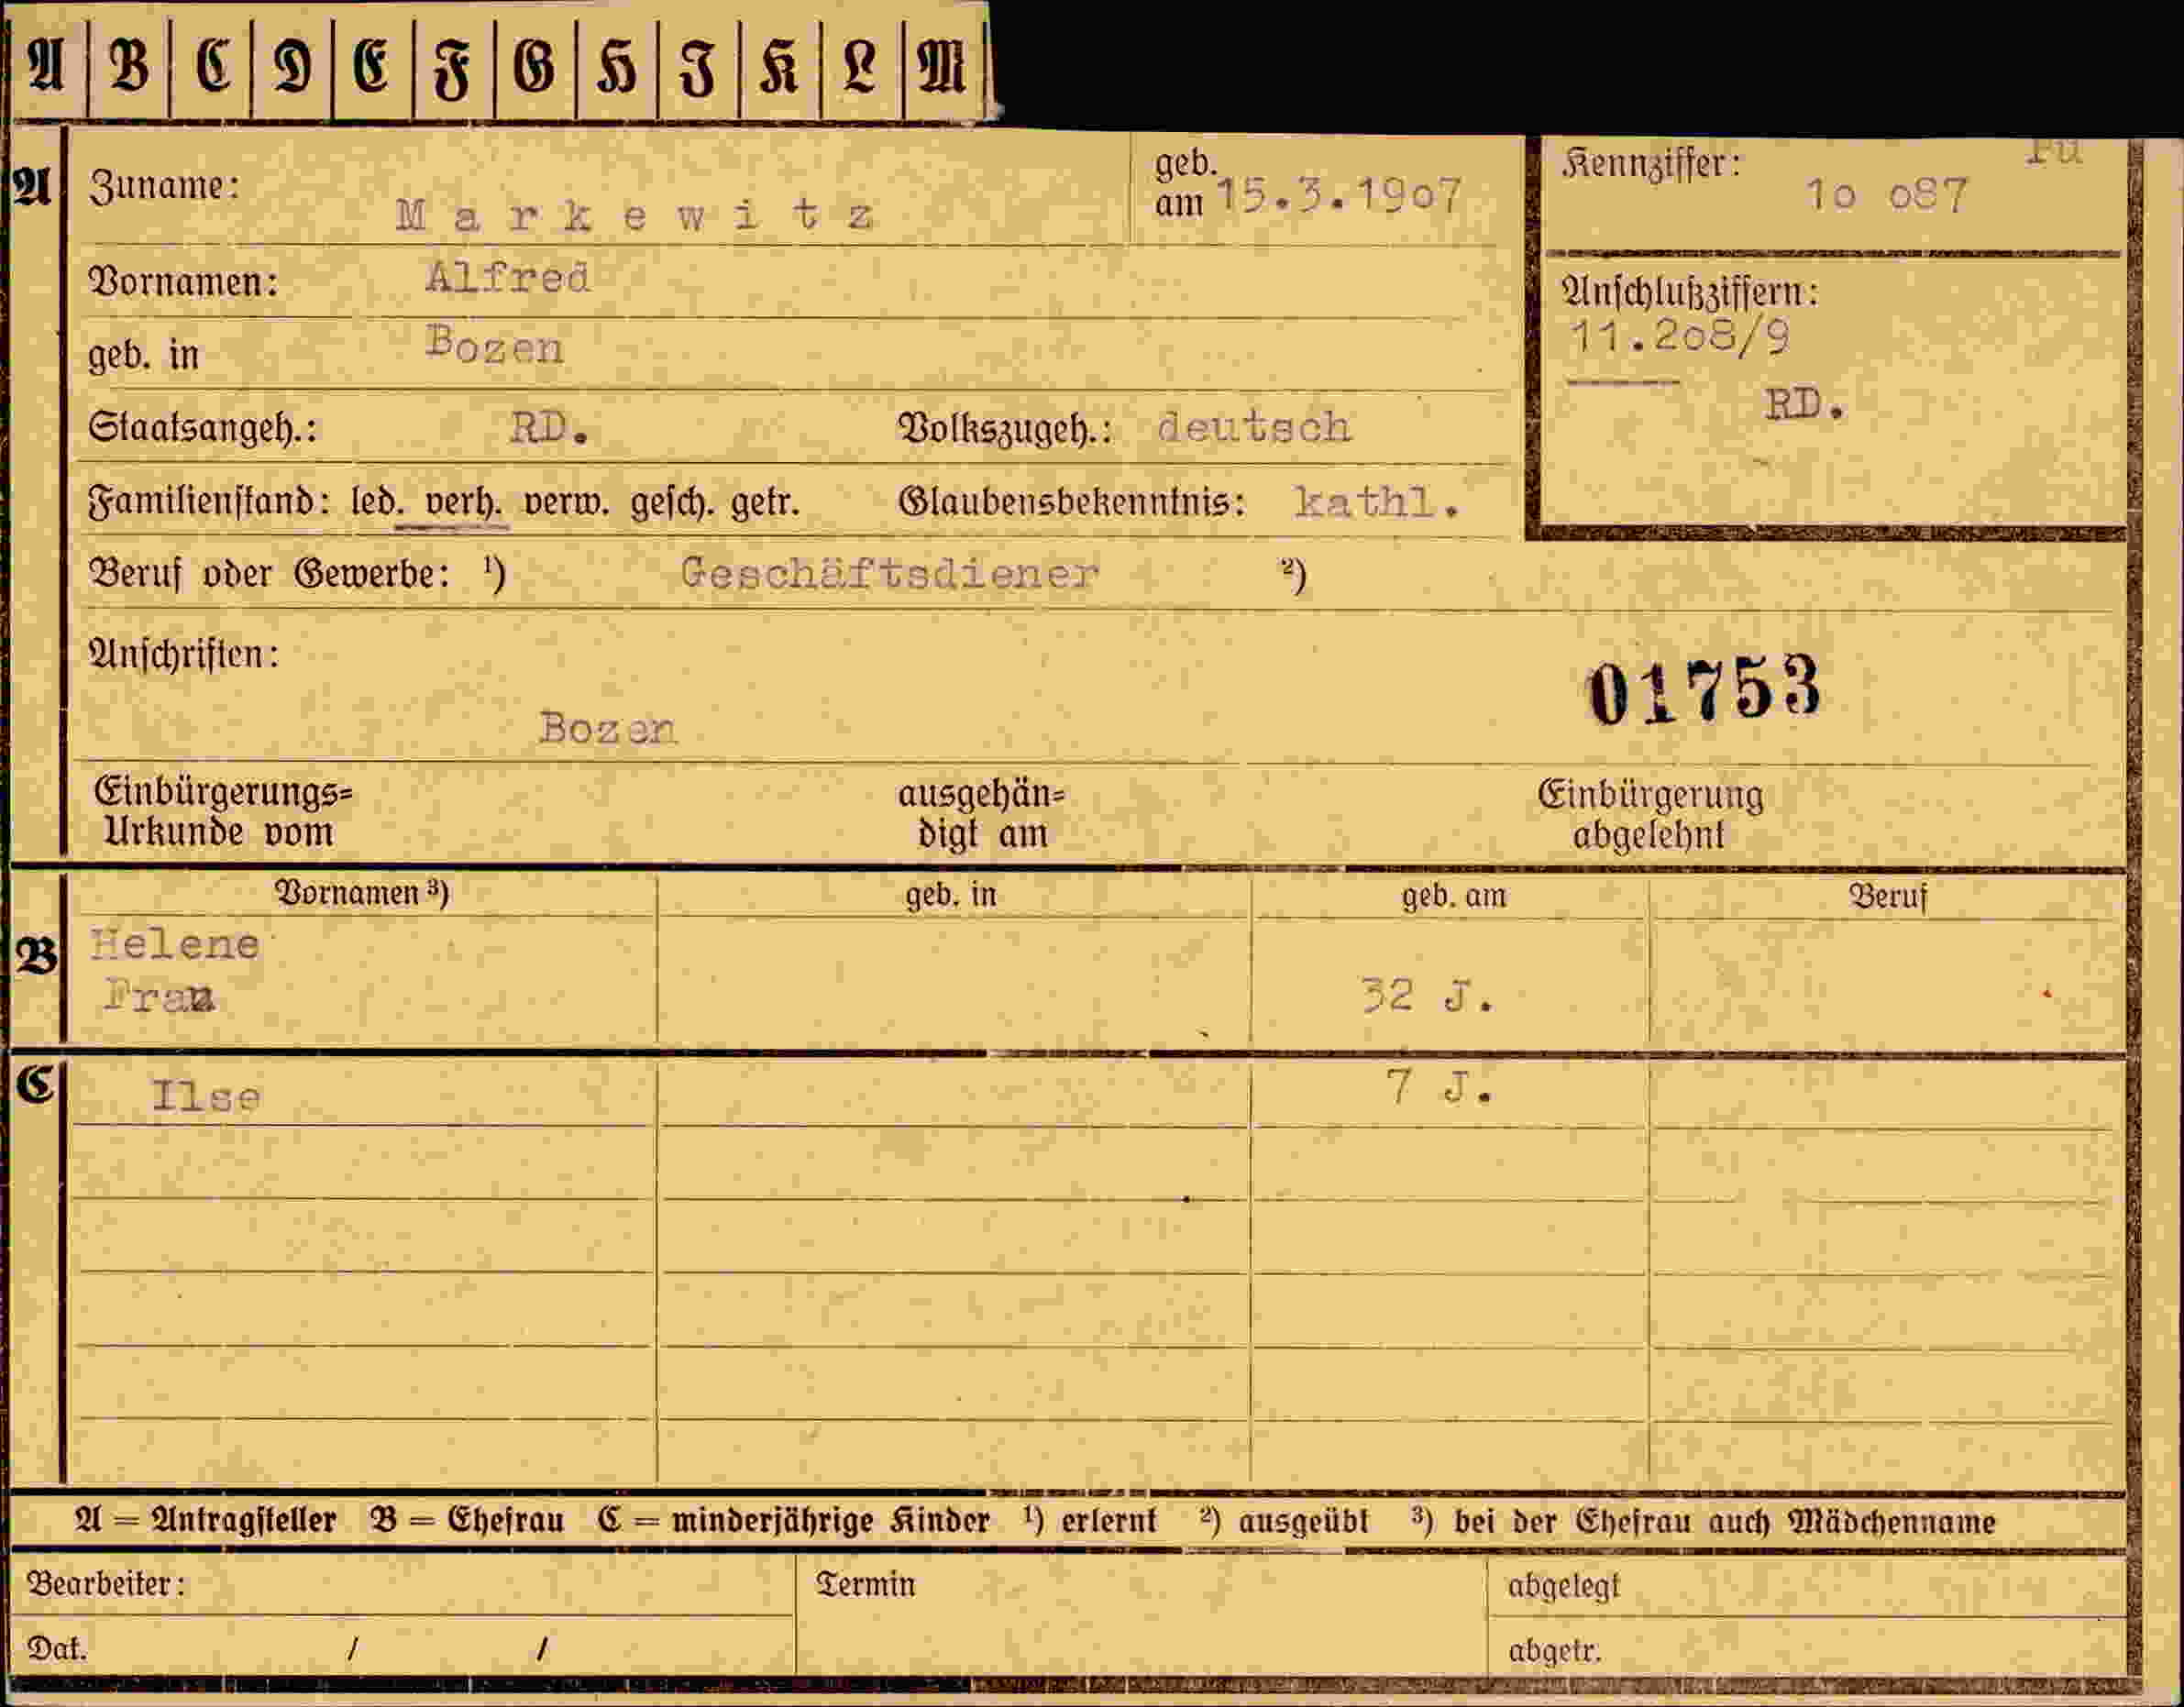 A B C D E F G H I K L M
A Zuname: Markewitz geb. am 15.3.1907 Kennziffer: 10 087
Vornamen: Alfred
Anschlußziffern:
geb. in Bozen 11.208/9
Staatsangeh.: RD. Volkszugeh.: deutsch RD.
Familienstand: led. verh. verw. gesch. getr. Glaubensbekenntnis: kathl.
Beruf oder Gewerbe: ¹) Geschäftsdiener ²)
Anschriften:
01753
Bozen
Einbürgerungs= ausgehän= Einbürgerung
Urkunde vom digt am abgelehnt
Vornamen ³) geb. in geb. am Beruf
B Helene
Frau 32 J.
C Ilse 7 J.
A = Antragsteller B = Ehefrau C = minderjährige Kinder ¹) erlernt ²) ausgeübt ³) bei der Ehefrau auch Mädchenname
Bearbeiter: Termin abgelegt
Dat. / / abgetr.